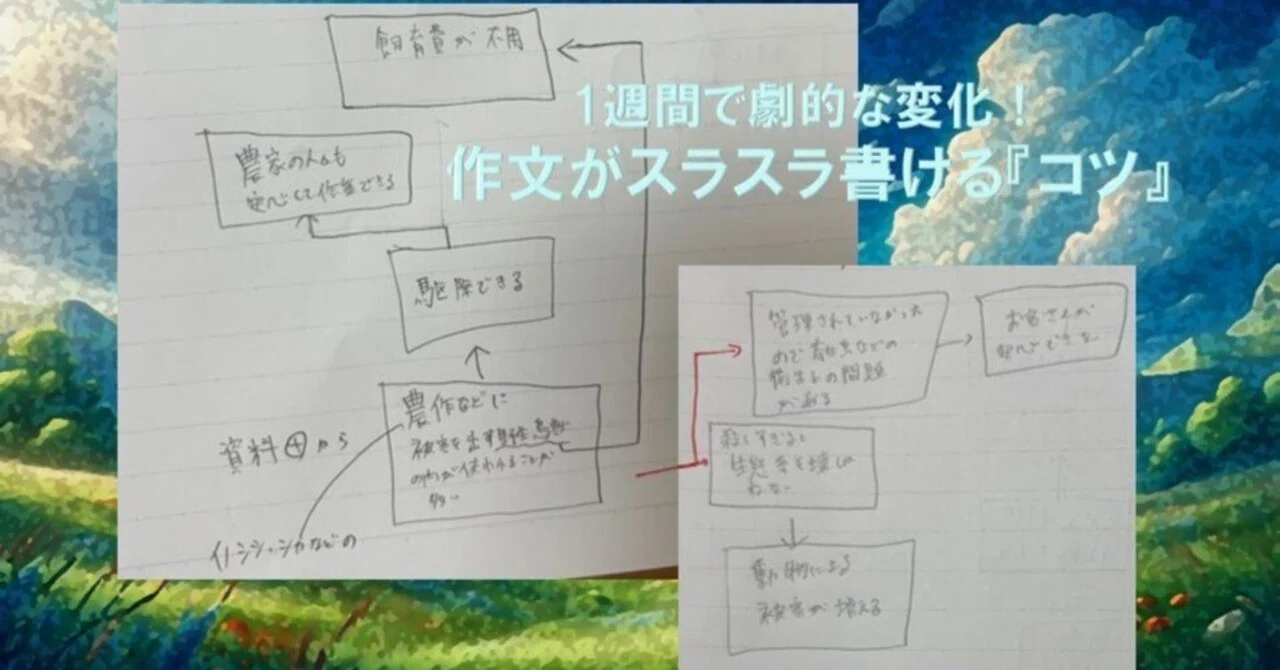 1週間で劇的な変化!
作文がスラスラ書ける『コツ』
飼育費が不用
農家の人々も
安心して作業できる
駆除できる
農作などに
被害を出す野生鳥獣
のわが使わることが
多い
資料④から
イノシシ・シカなどの
管理されていなかった
ので育ち方などの
衛生上の問題
がある
お客さんが
安心できない
殺しすぎると
生態系を壊しか
ねない
動物による
被害が増える